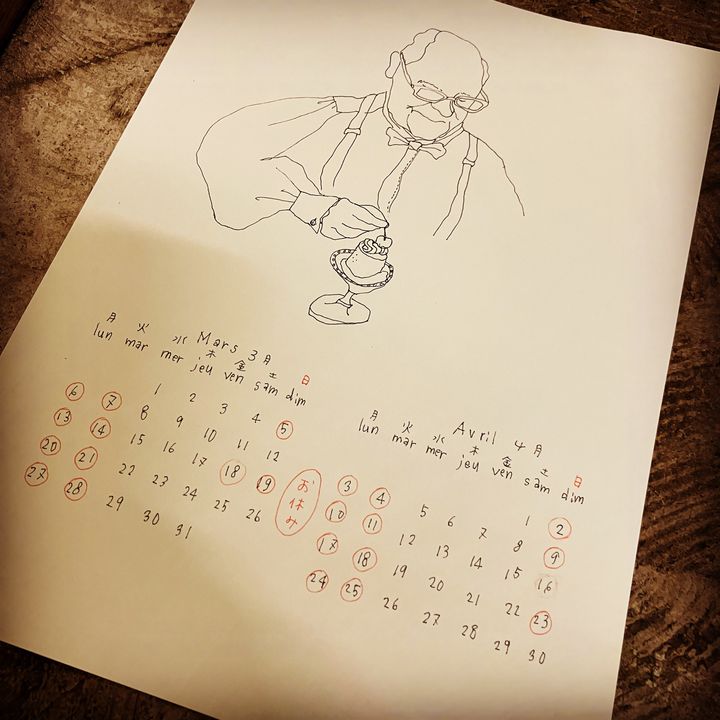 Mars 3月
月 火 水 木 金 土 日
lun mar mer jeu ven sam dim
1 2 3 4 5
6 7 8 9 10 11 12
13 14 15 16 17 18 19
20 21 22 23 24 25 26
27 28 29 30 31
お休み
Avril 4月
月 火 水 木 金 土 日
lun mar mer jeu ven sam dim
1 2
3 4 5 6 7 8 9
10 11 12 13 14 15 16
17 18 19 20 21 22 23
24 25 26 27 28 29 30